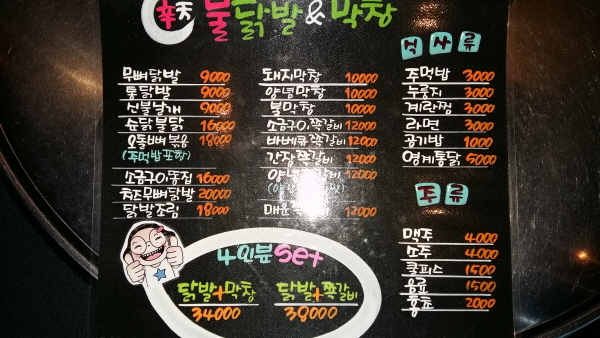 辛 불닭발&막창
무뼈닭발 9000
통닭발 9000
신불날개 9000
순닭불닭 16000
오돌뼈볶음 18000
(주먹밥포함)
소금구이똥집 16000
치즈무뼈닭발 20000
닭발조림 18000
돼지막창 10000
양념막창 10000
불막창 10000
소금구이쪽갈비 12000
바베큐쪽갈비 12000
간장쪽갈비 12000
양념쪽갈비 12000
매운 12000
식사류
주먹밥 3000
누룽지 3000
계란찜 3000
라면 3000
공기밥 1000
영계통닭 5000
주류
맥주 4000
소주 4000
쿨피스 1500
음료 1500
홍초 2000
4인분 Set
닭발+막창
34000
닭발+쪽갈비
38000